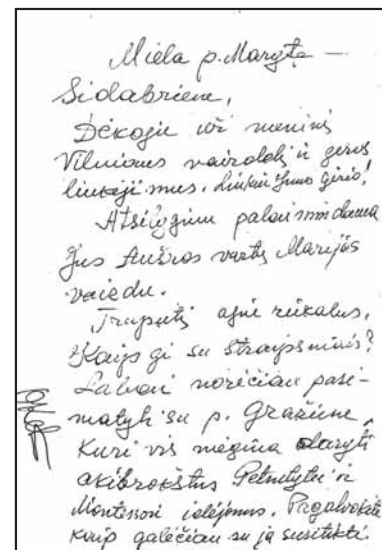 Miela p. Maryte —
Sidabriene,
Dėkoju už meninį
Vilniaus vaizdelį ir gerus
linkėjimus. Linkiu Jums gero!
Atsilyginu palaimindama
Jus Aušros vartų Marijos
vaizdu.
Truputį apie reikalus.
Kaip gi su straipsniais?
Labai norėčiau pasi-
matyti su p. Gražiene,
kuri vis mėgina daryti
akibrokštus Petrutytei ir
Montessori idėjoms. Pagalvokite
kaip galėčiau su ja susitikti.